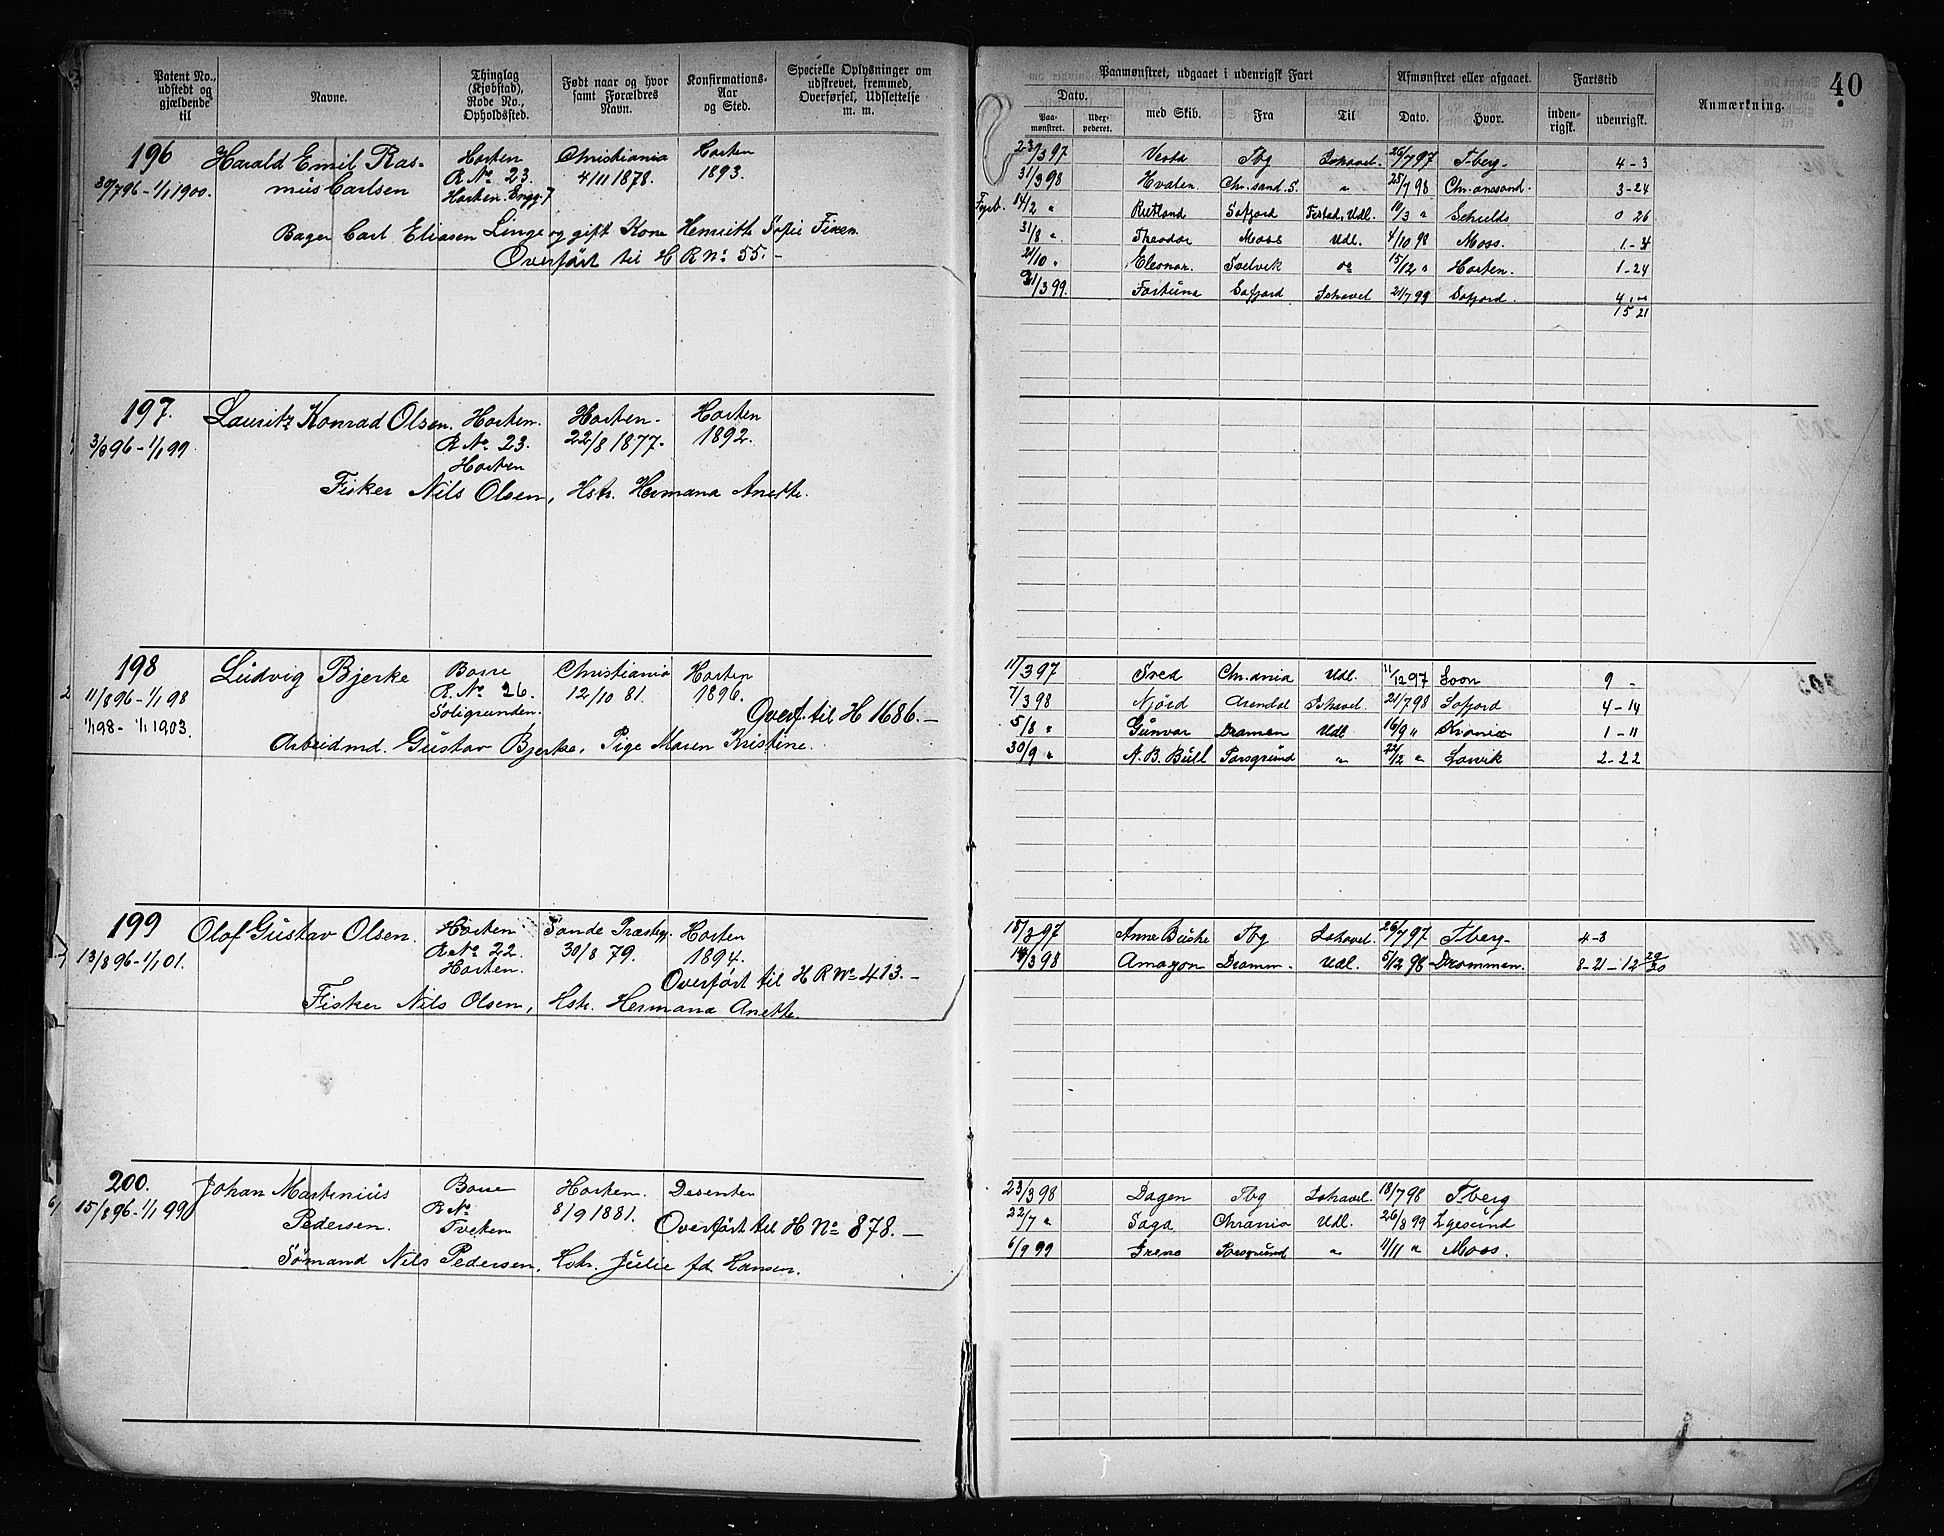 Patent No., udstedt og gjældende til
Navne.
Thinglag (Kjøbstad), Rode No., Opholdssted.
Født naar og hvor samt Forældres Navn.
Konfirmations-Aar og Sted.
Specielle Oplysninger om udskrevet, fremmed, Overførsel, Udslettelse m. m.
Paamønstret, udgaaet i udenrigsk Fart
Afmønstret eller afgaaet.
Fartstid
Anmærkning.
40
Dato.
Paa-mønstret.
Uder-pederet.
med Skib.
Fra
Til
Dato.
Hvor.
inden-rigsk.
udenrigsk.
196 Harald Emil Ras- Horten Christiania Horten
30/7 96 - 1/1 1900. mus Carlsen R No. 23. 4/11 1878. 1893.
Horten Engg. 7
Bager Carl Eliasen Linge og gift Kone Henriette Sofie
Overført til H R No 55. -
23/3 97 Vesta Tbg Ishavet. 26/7 97 Tberg- 4-3
31/3 98 Hvalen Chr. sand. S. " 25/7 98 Chr.anssand. 3-24
Fyrb. 14/2 " Rutland Udl. 10/3 " Schields 0 26
31/8 ". Theodor Moss Udl. 4/10 98 Moss. 1-4
21/10 ". Eleonor. Svelvik 15/12 " Horten. 1-24
21/3 99. Fortuna Ishavet 21/7 99
15 21
197. Lauritz Konrad Olsen. Horten. Horten. Horten
3/8 96 - 1/1 99 R No 23. 22/8 1877. 1892.
Horten
Fisker Nils Olsen, Hstr. Hermana Anette.
198 Ludvig Bjerke Borre Christiania Horten
11/8 96 - 1/1 98 R. No 26. 12/10 81. 1896.
1/1 98 - 1/1 1903. Soligrunden. Overf. til H 1686. -
Arbeidmd. Gustav Bjerke, Pige Maren Kristine.
11/3 97 Chr.ania Udl. 11/12 97 Soon 9 -
7/3 98 Njørd Arendal Ishavet. 21/7 98 4-14
5/8 " Gunvor Dramen Udl. 16/9 " 1-11
30/9 " A. B. Bull Porsgrund " 22/12 " Larvik 2-22
199 Olof Gustav Olsen. Horten Sande Præstegj. Horten
13/8 96 - 1/1 01. R No 22. 30/8 79. 1894.
Horten. Overført til H R No 413. -
Fisker Nils Olsen, Hstr. Hermana Anette.
18/3 97 Anne Buske Tbg Ishavet. 26/7 97 Tberg- 4-8
14/3 98 Amazon Dramm. Udl. 5/12 98 Drammen. 8-21-12 29/30
200. Johan Martinius Borre Horten. Desenter
15/8 96 - 1/1 99 Pedersen. R No 8/9 1881. Overført til H No 878. -
Tveten
Sømand Nils Pedersen, Hstr. Julie fd. Hansen.
23/3 98 Dagen Tbg Ishavet 18/7 98 Tberg
22/7 " Saga Chrania Udl. 26/8 99 Egesund
6/9 99 Irene Porsgrund " 11/11 " Moss.